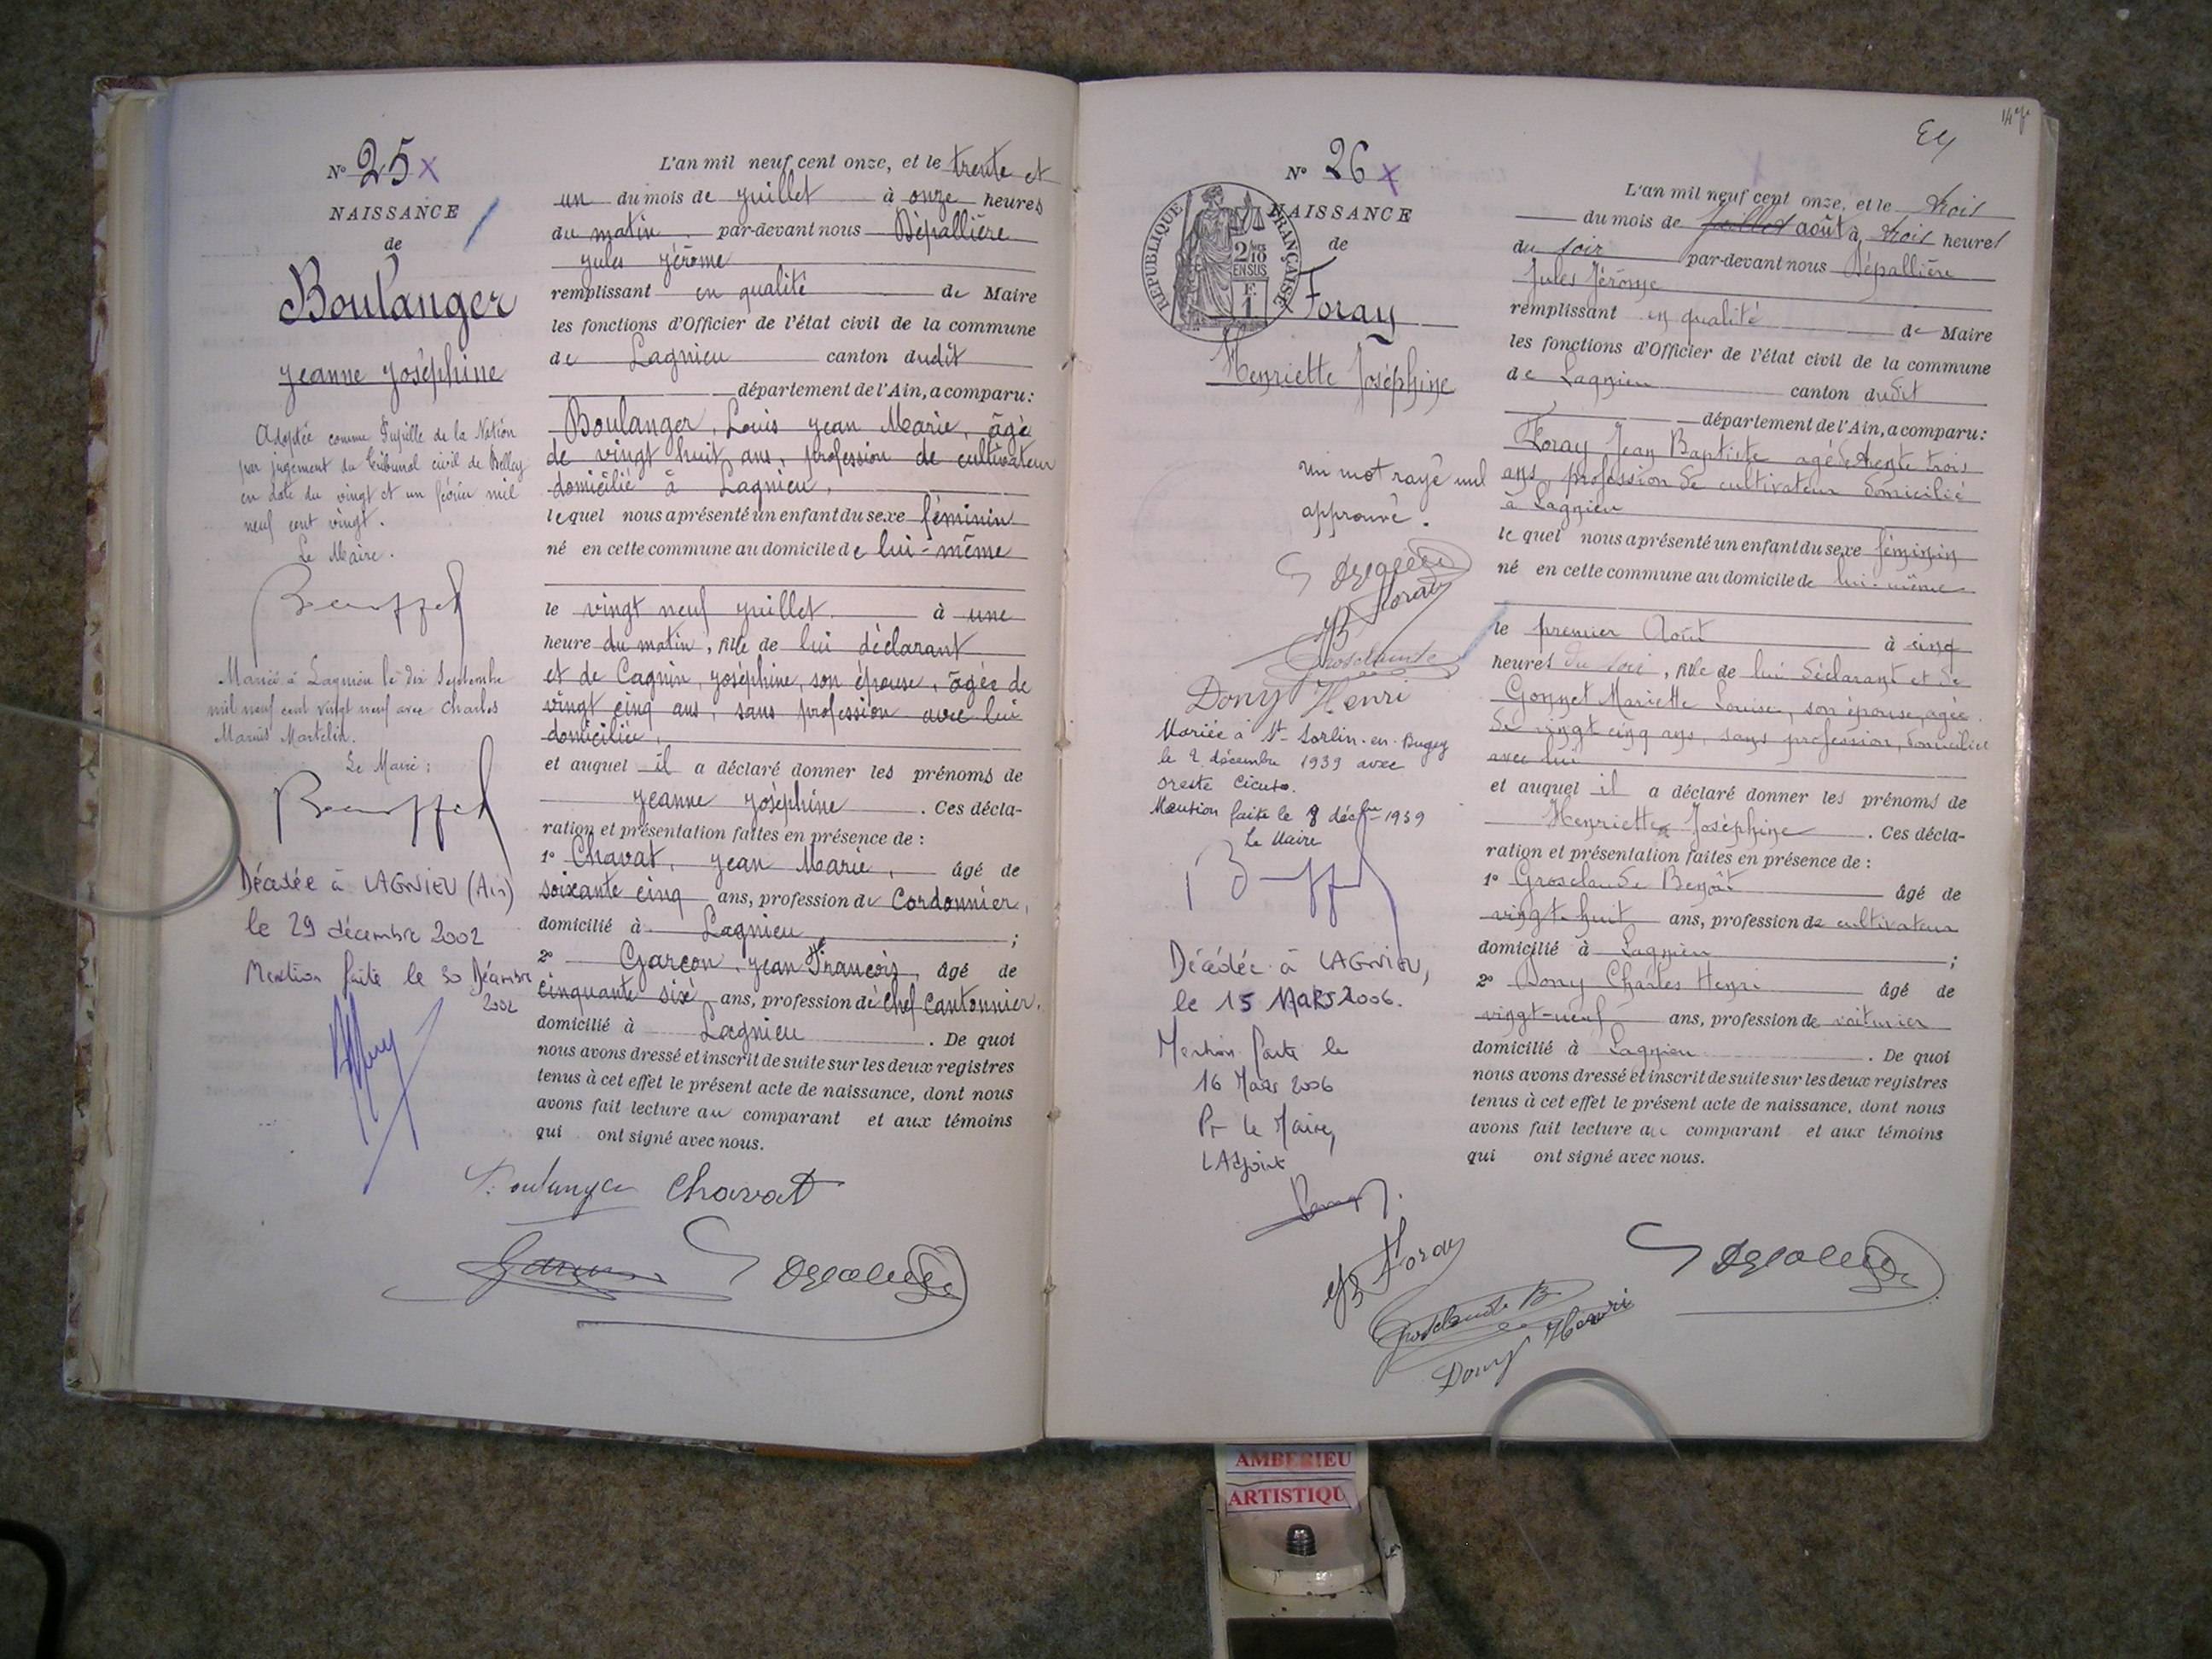 N° 25 X
NAISSANCE
de
Boulanger
Jeanne Joséphine
Adoptée comme Pupille de la Nation
par jugement du tribunal civil de Belley
en date du vingt et un février mil
neuf cent vingt.
Le Maire.
Mariée à Lagnieu le dix Septembre
mil neuf cent vingt neuf avec Charles
Marius Martelin.
Le Maire :
Décédée à LAGNIEU (Ain)
le 29 décembre 2002
Mention faite le 30 Décembre
2002
L'an mil neuf cent onze, et le trente et
un du mois de juillet à onze heures
du matin par-devant nous Dépallière
Jules Jérôme
remplissant en qualité de Maire
les fonctions d'Officier de l'état civil de la commune
de Lagnieu canton dudit
département de l'Ain, a comparu :
Boulanger, Louis Jean Marie, âgé
de vingt huit ans, profession de cultivateur
domicilié à Lagnieu,
lequel nous a présenté un enfant du sexe féminin
né en cette commune au domicile de lui-même
le vingt neuf juillet à une
heure du matin, fille de lui déclarant
et de Cagnin, Joséphine, son épouse, âgée de
vingt cinq ans, sans profession avec lui
domiciliée,
et auquel il a déclaré donner les prénoms de
Jeanne Joséphine . Ces décla-
ration et présentation faites en présence de :
1° Chavat, Jean Marie, âgé de
soixante cinq ans, profession de Cordonnier,
domicilié à Lagnieu ;
2° Garçon, Jean François, âgé de
cinquante six ans, profession de chef cantonnier.
domicilié à Lagnieu . De quoi
nous avons dressé et inscrit de suite sur les deux registres
tenus à cet effet le présent acte de naissance, dont nous
avons fait lecture au comparant et aux témoins
qui ont signé avec nous.
Boulanger Chavat
Garçon J Dépallière
E4
N° 26 X
NAISSANCE
de
RÉPUBLIQUE FRANÇAISE
2/10
EN SUS
F.
1
Foray
Henriette Joséphine
un mot rayé nul
approuvé.
J Dépallière
JB Foray
Grosclaude
Dony Henri
Mariée à St-Sorlin-en-Bugey
le 2 décembre 1939 avec
Oreste Cicuto.
Mention faite le 8 décbre 1939
Le Maire
Décédée à LAGNIEU,
le 15 MARS 2006.
Mention faite le
16 Mars 2006
Pr le Maire,
L'Adjoint
L'an mil neuf cent onze, et le trois
du mois de juillet août à trois heures
du soir par-devant nous Dépallière
Jules Jérôme
remplissant en qualité de Maire
les fonctions d'Officier de l'état civil de la commune
de Lagnieu canton dudit
département de l'Ain, a comparu :
Foray Jean Baptiste agé de trente trois
ans, profession de cultivateur domicilié
à Lagnieu
lequel nous a présenté un enfant du sexe féminin
né en cette commune au domicile de lui-même
le premier Août à cinq
heures du soir, fille de lui déclarant et de
Gonnet Mariette Louise, son épouse, agée
de vingt cinq ans, sans profession, domiciliée
avec lui
et auquel il a déclaré donner les prénoms de
Henriette Joséphine . Ces décla-
ration et présentation faites en présence de :
1° Grosclaude Benoît âgé de
vingt-huit ans, profession de cultivateur
domicilié à Lagnieu ;
2° Dony Charles Henri âgé de
vingt-neuf ans, profession de voiturier
domicilié à Lagnieu . De quoi
nous avons dressé et inscrit de suite sur les deux registres
tenus à cet effet le présent acte de naissance, dont nous
avons fait lecture au comparant et aux témoins
qui ont signé avec nous.
JB Foray
J Dépallière
Grosclaude B
Dony Henri
AMBERIEU
ARTISTIQU